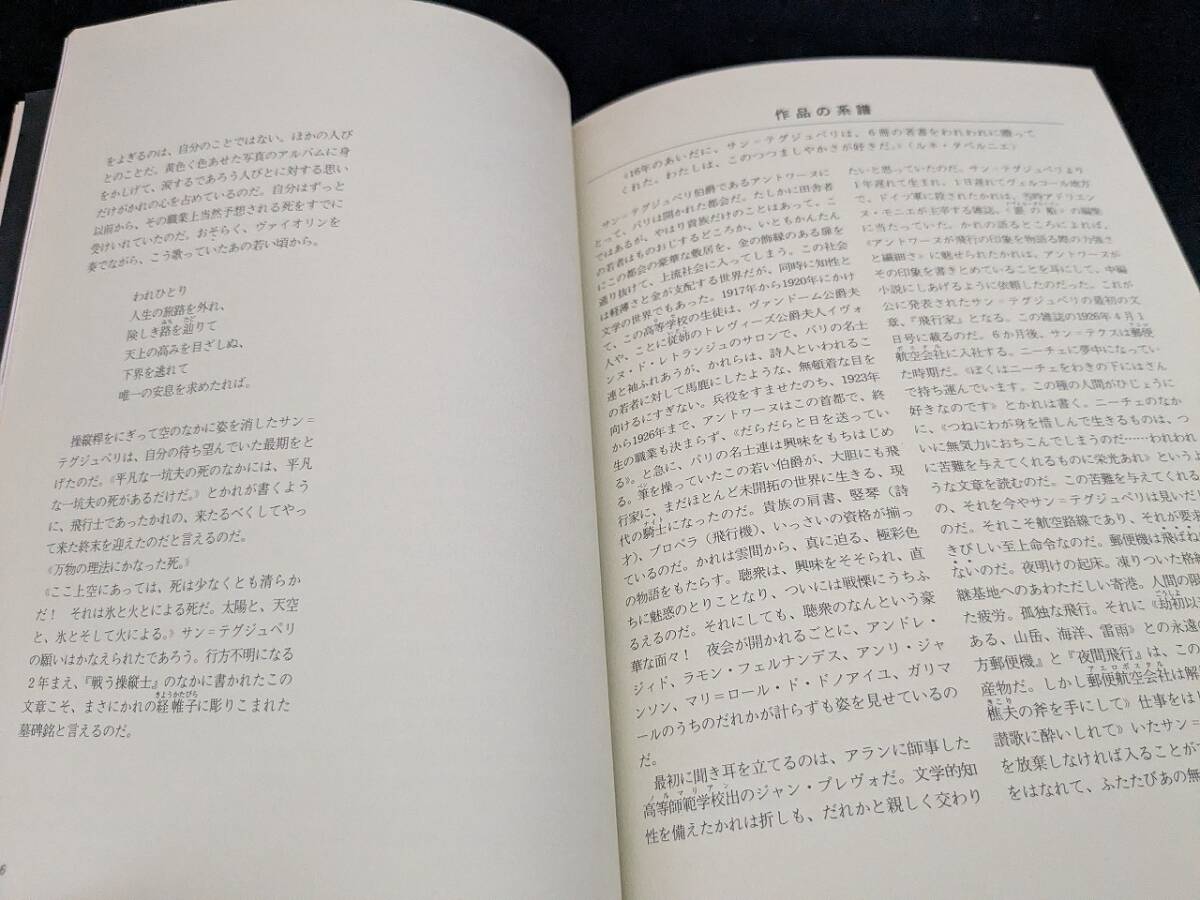 をよぎるのは、自分のことではない。ほかの人び
とのことだ。黄色く色あせた写真のアルバムに身
をかしげて、涙するであろう人びとに対する思い
だけがかれの心を占めているのだ。自分はずっと
以前から、その職業上当然予想される死をすでに
受けいれていたのだ。おそらく、ヴァイオリンを
奏でながら、こう歌っていたあの若い頃から。
われひとり
人生の旅路を外れ、
険しき路を辿りて
天上の高みを目ざしぬ、
下界を逃れて
唯一の安息を求めたれば。
操縦桿をにぎって空のなかに姿を消したサン=
テグジュペリは、自分の待ち望んでいた最期をと
げたのだ。《平凡な一坑夫の死のなかには、平凡
な一坑夫の死があるだけだ。》とかれが書くよう
に、飛行士であったかれの、来たるべくしてやっ
て来た終末を迎えたのだと言えるのだ。
《万物の理法にかなった死。》
《ここ上空にあっては、死は少なくとも清らか
だ! それは氷と火とによる死だ。太陽と、天空
と、氷とそして火による。》サン=テグジュペリ
の願いはかなえられたであろう。行方不明になる
2年まえ、『戦う操縦士』のなかに書かれたこの
文章こそ、まさにかれの経帷子に彫りこまれた
墓碑銘と言えるのだ。
6
作品の系譜
《16年のあいだに、サン=テグジュペリは、6冊の著書をわれわれに贈って
くれた。わたしは、このつつましやかさが好きだ。》(ルネ・タベルニエ)
サン=テグジュペリ伯爵であるアントワーヌに
とって、パリは開かれた都会だ。たしかに田舎者
ではあるが、やはり貴族だけのことはあって、こ
の若者はものおじするどころか、いともかんたん
にこの都会の豪華な敷居を、金の飾縁のある扉を
通り抜けて、上流社会に入ってしまう。この社会
は軽薄さと金が支配する世界だが、同時に知性と
文学の世界でもあった。1917年から1920年にかけ
て、この高等学校の生徒は、ヴァンドーム公爵夫
人や、ことに従姉のトレヴィーズ公爵夫人イヴォ
ンヌ・ド・レトランジュのサロンで、パリの名士
連と袖ふれあうが、かれらは、詩人といわれるこ
の若者に対して馬鹿にしたような、無頓着な目を
向けるにすぎない。兵役をすませたのち、1923年
から1926年まで、アントワーヌはこの首都で、終
生の職業も決まらず、《だらだらと日を送ってい
る》。と急に、パリの名士連は興味をもちはじめ
る。筆を操っていたこの若い伯爵が、大胆にも飛
行家に、まだほとんど未開拓の世界に生きる、現
代の騎士になったのだ。貴族の肩書、竪琴(詩
才)、プロペラ(飛行機)、いっさいの資格が揃っ
ているのだ。かれは雲間から、真に迫る、極彩色
の物語をもたらす。聴衆は、興味をそそられ、直
ちに魅惑のとりことなり、ついには戦慄にうちふ
るえるのだ。それにしても、聴衆のなんという豪
華な面々! 夜会が開かれるごとに、アンドレ・
ジィド、ラモン・フェルナンデス、アンリ・ジャ
ンソン、マリ=ロール・ド・ドノアイユ、ガリマ
ールのうちのだれかが計らずも姿を見せているの
だ。
最初に聞き耳を立てるのは、アランに師事した
高等師範学校出のジャン・プレヴォだ。文学的知
性を備えたかれは折しも、だれかと親しく交わり
たいと思っていたのだ。サン=テグジュペリより
1年遅れて生まれ、1日遅れてヴェルコール地方
で、ドイツ軍に殺されたかれは、当時アドリエン
ヌ・モニエが主宰する雑誌、《銀の船》の編集
に当たっていた。かれの語るところによれば、
《アントワーヌが飛行の印象を物語る際の力強さ
と繊細さ》に魅せられたかれは、アントワーヌが
その印象を書きとめていることを耳にして、中編
小説にしあげるように依頼したのだった。これが
公に発表されたサン=テグジュペリの最初の文
章、『飛行家』となる。この雑誌の1926年4月1
日号に載るのだ。6か月後、サン=テクスは郵便
航空会社に入社する。ニーチェに夢中になってい
た時期だ。《ぼくはニーチェをわきの下にはさん
で持ち運んでいます。この種の人間がひじょうに
好きなのです》とかれは書く。ニーチェのなか
に、《つねにわが身を惜しんで生きるものは、つ
いに無気力におちこんでしまうのだ……われわれ
に苦難を与えてくれるものに栄光あれ》というよ
うな文章を読むのだ。この苦難を与えてくれるも
の、それを今やサン=テグジュペリは見いだし
のだ。それこそ航空路線であり、それが要求
きびしい至上命令なのだ。郵便機は飛ばね
ないのだ。夜明けの起床。凍りついた格納
継基地へのあわただしい寄港。人間の限
た疲労。孤独な飛行。それに《劫初以
ある、山岳、海洋、雷雨》との永遠の
方郵便機』と『夜間飛行』は、この
産物だ。しかし郵便航空会社は解
樵夫の斧を手にして》仕事をは
讃歌に酔いしれて》いたサン=
を放棄しなければ入ることが
をはなれて、ふたたびあの無